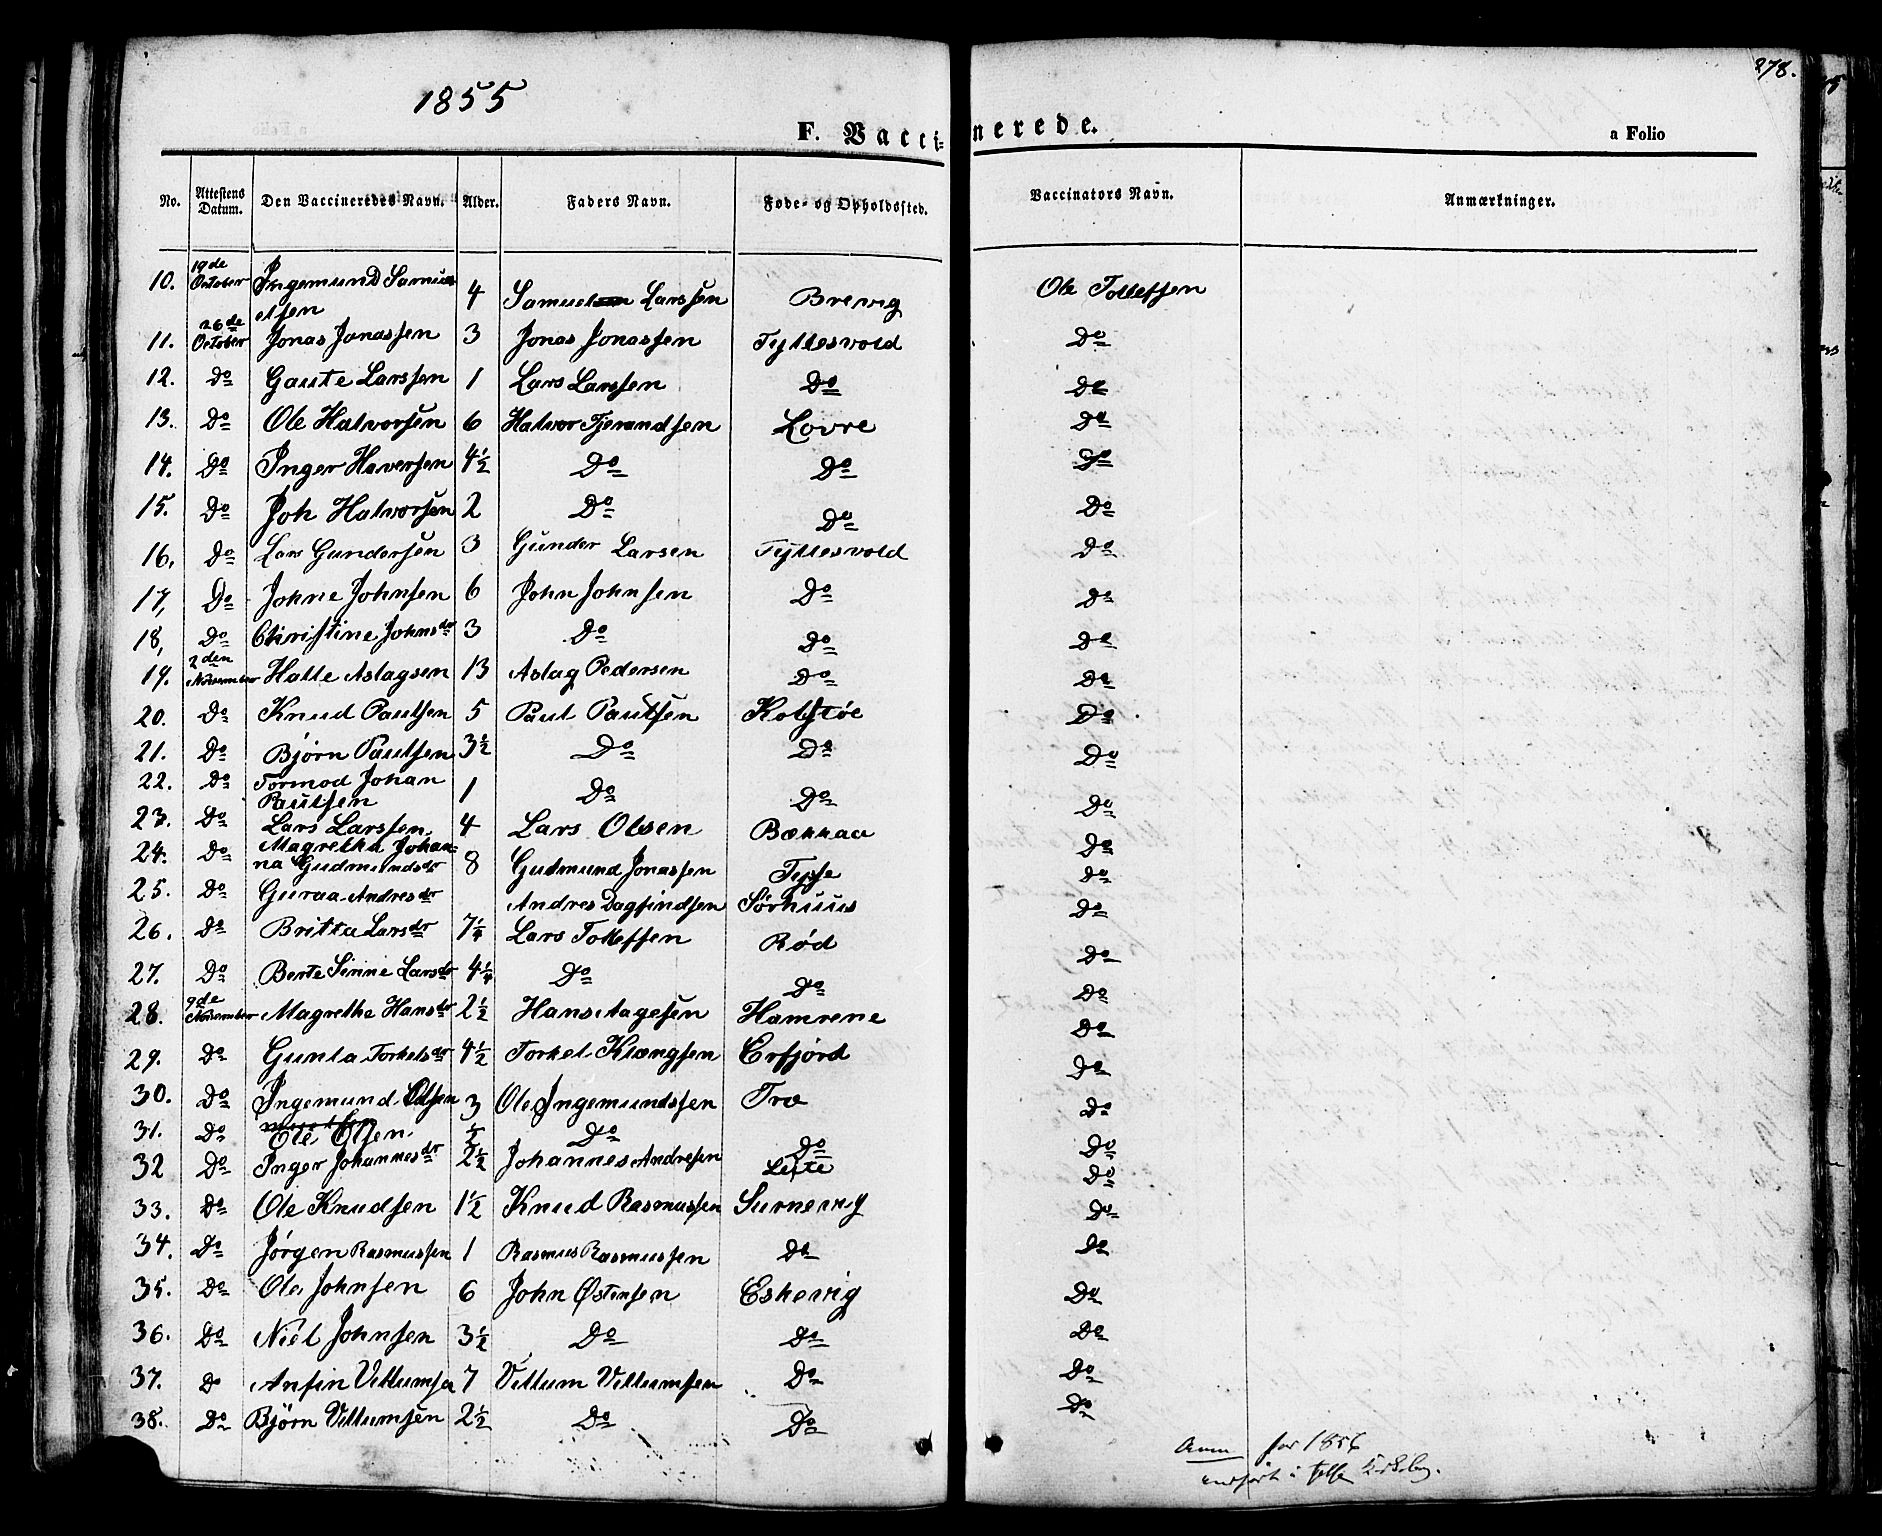 1855
278.
F. Vaccinerede.
a Folio
No. Attestens Datum. Den Vaccineredes Navn. Alder. Faders Navn. Føde- og Opholdssted. Vaccinators Navn. Anmærkninger.
10. 19de October Ingemund Samuelsen 4 Samuel Larssen Brevig Ole Tollefsen
11. 26de October Jonas Jonassen 3 Jonas Jonassen Tyttesvold Do
12. Do Gaute Larssen 1 Lars Larssen Do Do
13. Do Ole Halvorsen 6 Halvor Tjerandsen Lovre Do
14. Do Inger Haversen 4½ Do Do Do
15. Do Joh Halvorsen 2 Do Do Do
16, Do Lars Gundersen 3 Gunder Larsen Tyttesvold Do
17, Do Johne Johnsen 6 John Johnsen Do Do
18, Do Christine Johnsdr 3 Do Do Do
19. 2den November Halle Aslagsen 13 Aslag Pedersen Do Do
20. Do Knud Paulsen 5 Paul Paulsen Kolstøe Do
21. Do Bjørn Paulsen 3½ Do Do Do
22. Do Tormod Johan Paulsen 1 Do Do Do
23. Do Lars Larssen 4 Lars Olsen Bækkaa Do
24. Do Magretha Johanna Gudmundsdr 8 Gudmund Jonassen Do
25. Do Guraa Andresdr Andres Dagfindsen Sørhuus Do
26. Do Britta Larsdr 7¼ Lars Tollefsen Rød Do
27. Do Berte Serine Larsdr 4¼ Do Do Do
28. 9de November Magrethe Hansdr 2½ Hans Aagesen Hamrene Do
29. Do Gunla Torkelsdr 4½ Torkel Klængsen Erfjord Do
30. Do Ingemund Olsen 3 Ole Ingemundsen Træ Do
31. Do Ole Olsen ½ Do Do Do
32 Do Inger Johannesdr 2½ Johannes Andresen Leite Do
33. Do Ole Knudsen 1½ Knud Rasmussen Surnevig Do
34. Do Jørgen Rasmussen 1 Rasmus Rasmussen Do Do
35. Do Ole Johnsen 6 John Østensen Eskevig Do
36. Do Niel Johnsen 3½ Do Do Do
37. Do Anfin Villumsen 7 Villum Villumsen Do Do
38. Do Bjørn Villumsen 2½ Do Do Do
Anm for 1856
indført i